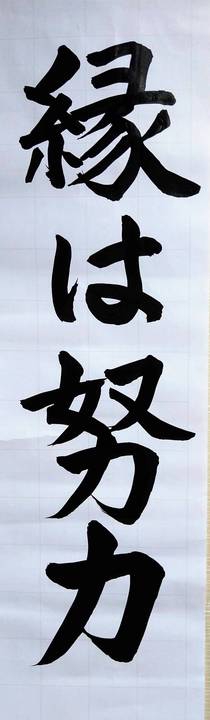 縁は努力